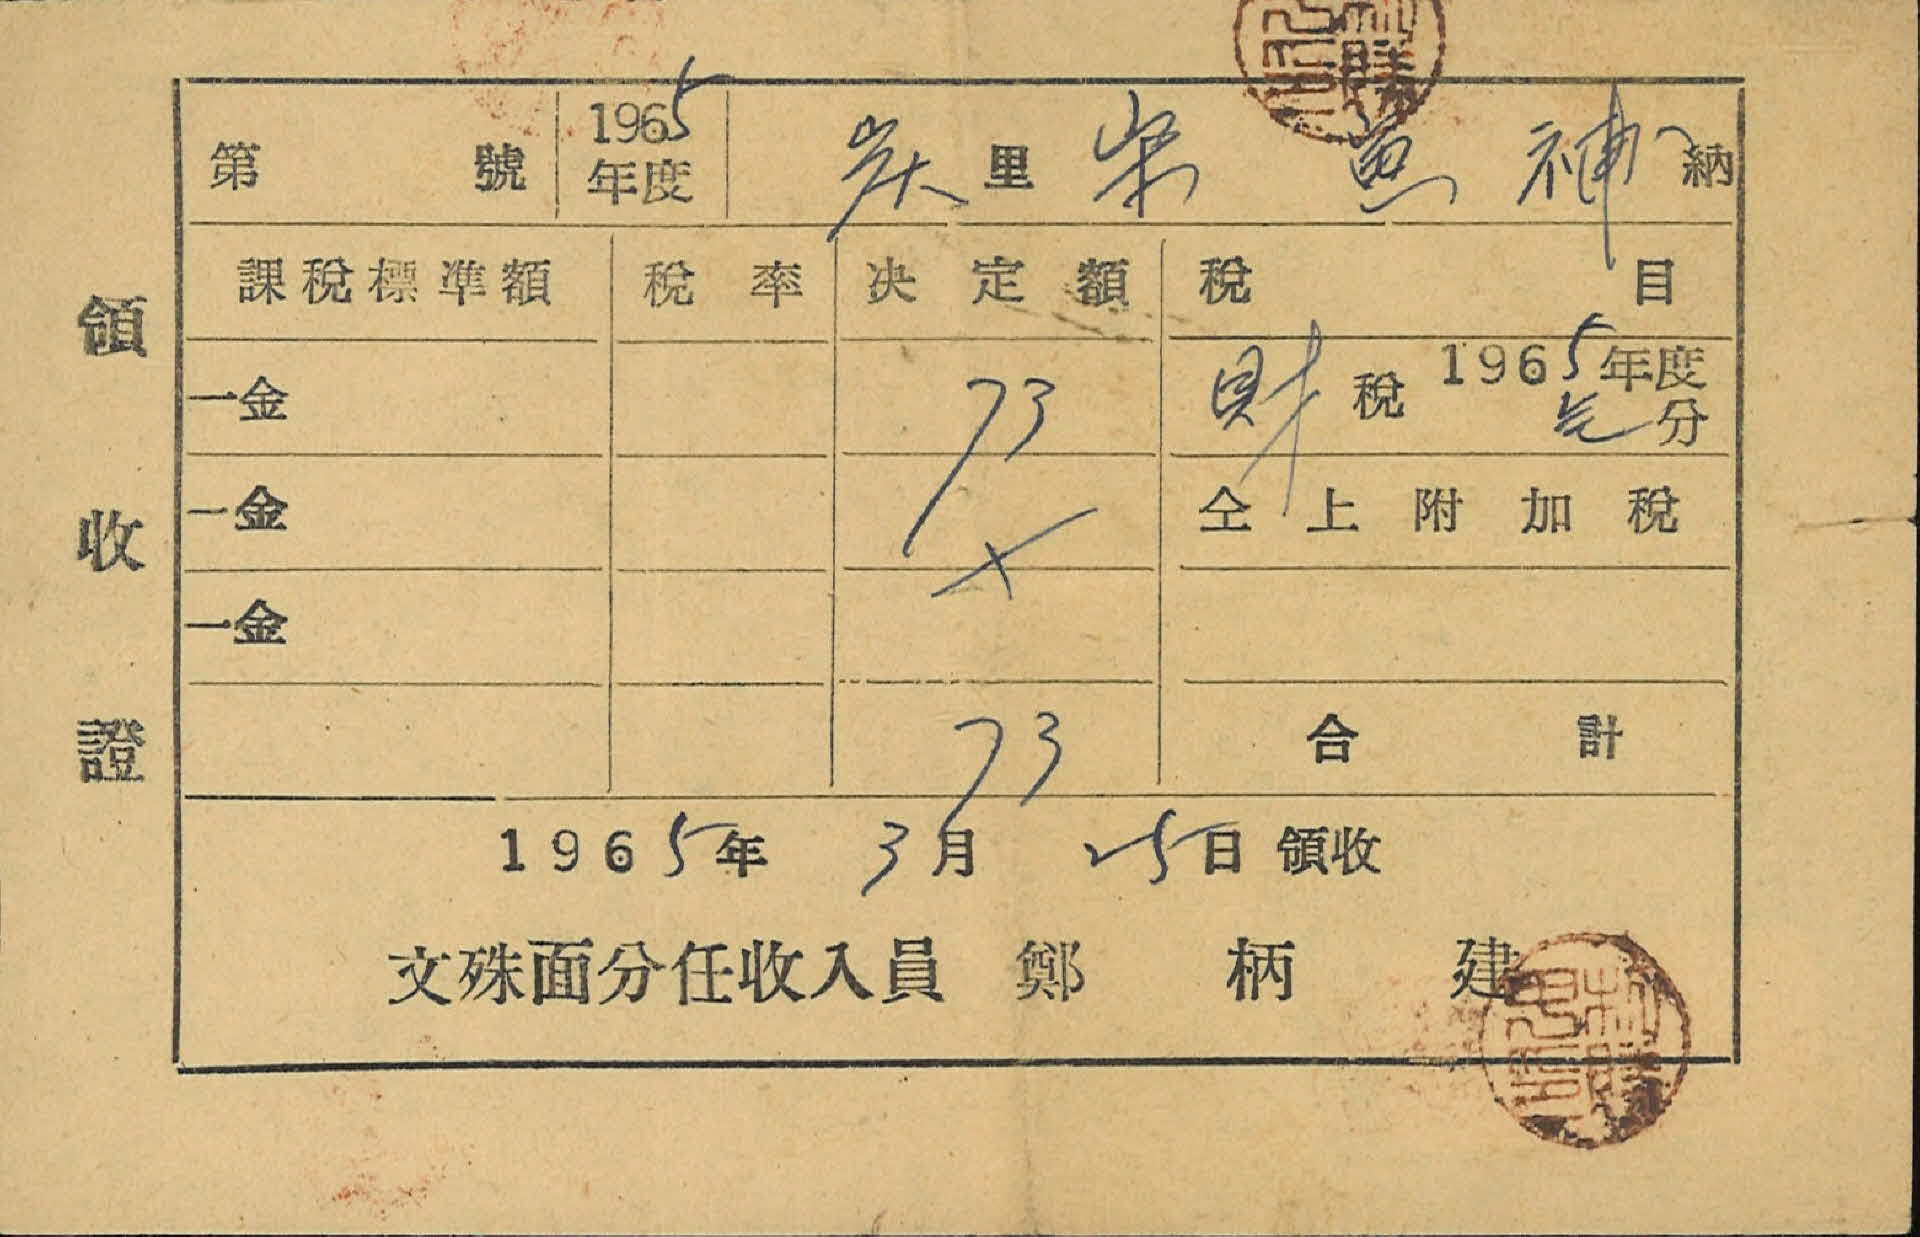 領收證
第 號 1965年度 里 納
課稅標準額 稅率 決定額 稅目
一金 73 財稅 1965年度分
一金 仝上附加稅
一金
73 合計
1965年 3月 25日 領收
文殊面分任收入員 鄭柄建